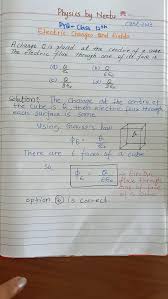 Physics by Neetu
Class 12th
Electric Charges and Fields
A charge Q is placed at the centre of a cube
The electric flux through one of its face is
(a) Q/ε₀ (b) Q/6ε₀
Solution: The charge at the centre of
the cube is & then electric flux through
each surface is same.
Using Gauss's law
There are 6 faces of a cube
So,
is Electric
flux through
one of face
option (b) is correct